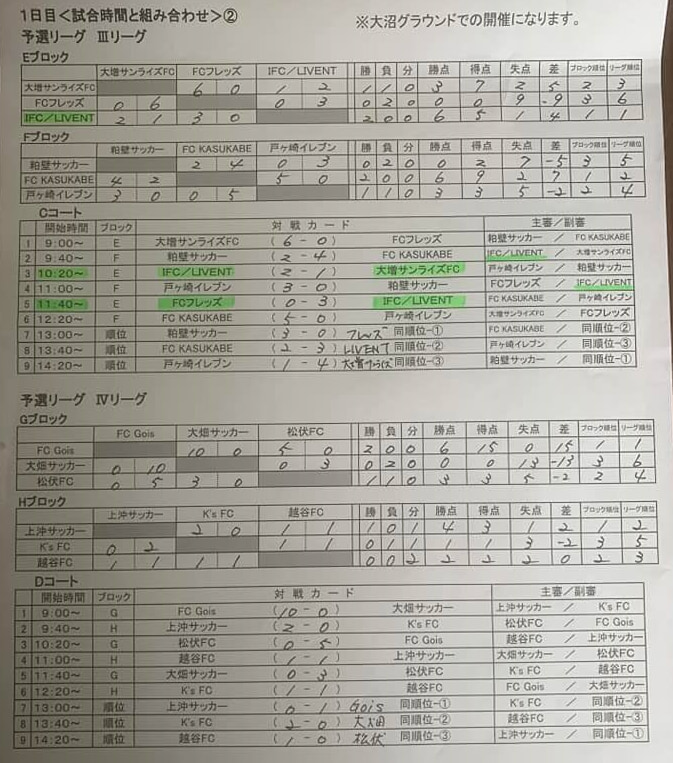 1日目<試合時間と組み合わせ>②
※大沼グラウンドでの開催になります。
予選リーグ Ⅲリーグ
Eブロック
大増サンライズFC FCフレッズ IFC/LIVENT 勝 負 分 勝点 得点 失点 差 ブロック順位 リーグ順位
大増サンライズFC 6 0 1 2 1 1 0 3 7 2 5 2 3
FCフレッズ 0 6 0 3 0 2 0 0 0 9 -9 3 6
IFC/LIVENT 2 1 3 0 2 0 0 6 5 1 4 1 1
Fブロック
粕壁サッカー FC KASUKABE 戸ヶ崎イレブン 勝 負 分 勝点 得点 失点 差 ブロック順位 リーグ順位
粕壁サッカー 2 4 0 3 0 2 0 0 2 7 -5 3 5
FC KASUKABE 4 2 5 0 2 0 0 6 9 2 7 1 2
戸ヶ崎イレブン 3 0 0 5 1 1 0 3 3 5 -2 2 4
Cコート
開始時間 ブロック 対戦カード 主審/副審
1 9:00~ E 大増サンライズFC (6-0) FCフレッズ 粕壁サッカー / FC KASUKABE
2 9:40~ F 粕壁サッカー (2-4) FC KASUKABE IFC/LIVENT / 大増サンライズFC
3 10:20~ E IFC/LIVENT (2-1) 大増サンライズFC 戸ヶ崎イレブン / 粕壁サッカー
4 11:00~ F 戸ヶ崎イレブン (3-0) 粕壁サッカー FCフレッズ / IFC/LIVENT
5 11:40~ E FCフレッズ (0-3) IFC/LIVENT FC KASUKABE / 戸ヶ崎イレブン
6 12:20~ F FC KASUKABE (5-0) 戸ヶ崎イレブン 大増サンライズFC / FCフレッズ
7 13:00~ 順位 粕壁サッカー (3-0) フレッズ 同順位-① FC KASUKABE / 同順位-②
8 13:40~ 順位 FC KASUKABE (2-3) LIVENT 同順位-② 戸ヶ崎イレブン / 同順位-③
9 14:20~ 順位 戸ヶ崎イレブン (1-4) 大増サンライズ 同順位-③ 粕壁サッカー / 同順位-①
予選リーグ Ⅳリーグ
Gブロック
FC Gois 大畑サッカー 松伏FC 勝 負 分 勝点 得点 失点 差 ブロック順位 リーグ順位
FC Gois 10 0 5 0 2 0 0 6 15 0 15 1 1
大畑サッカー 0 10 0 3 0 2 0 0 0 13 -13 3 6
松伏FC 0 5 3 0 1 1 0 3 3 5 -2 2 4
Hブロック
上沖サッカー K's FC 越谷FC 勝 負 分 勝点 得点 失点 差 ブロック順位 リーグ順位
上沖サッカー 2 0 1 1 1 0 1 4 3 1 2 1 2
K's FC 0 2 1 1 0 1 1 1 1 3 -2 3 5
越谷FC 1 1 1 1 0 0 2 2 2 2 0 2 3
Dコート
開始時間 ブロック 対戦カード 主審/副審
1 9:00~ G FC Gois (10-0) 大畑サッカー 上沖サッカー / K's FC
2 9:40~ H 上沖サッカー (2-0) K's FC 松伏FC / FC Gois
3 10:20~ G 松伏FC (0-5) FC Gois 越谷FC / 上沖サッカー
4 11:00~ H 越谷FC (1-1) 上沖サッカー 大畑サッカー / 松伏FC
5 11:40~ G 大畑サッカー (0-3) 松伏FC K's FC / 越谷FC
6 12:20~ H K's FC (1-1) 越谷FC FC Gois / 大畑サッカー
7 13:00~ 順位 上沖サッカー (0-1) Gois 同順位-① K's FC / 同順位-②
8 13:40~ 順位 K's FC (2-0) 大畑 同順位-② 越谷FC / 同順位-③
9 14:20~ 順位 越谷FC (1-0) 松伏 同順位-③ 上沖サッカー / 同順位-①